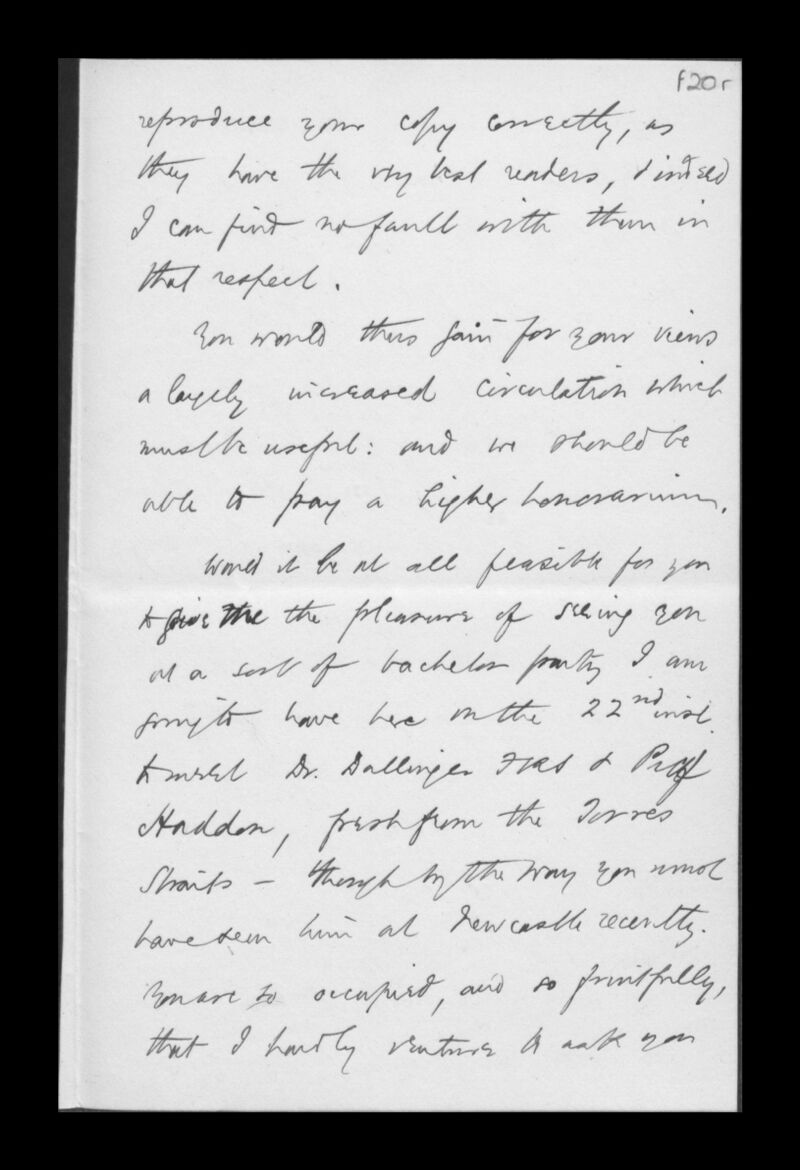 f20r
reproduce your copy correctly, as
they have the very best readers, & indeed
I can find no fault with them in
that respect.
You would thus gain for your views
a largely increased circulation which
must be useful: and we should be
able to pay a higher honorarium.
Would it be at all feasible for you
to give me the pleasure of seeing you
at a sort of bachelor party I am
going to have here on the 22nd inst.
to meet Dr. Dallinger FRS & Prof
Haddon, fresh from the Torres
Straits – though by the way you must
have seen him at Newcastle recently.
You are so occupied, and so fruitfully,
that I hardly venture to ask you